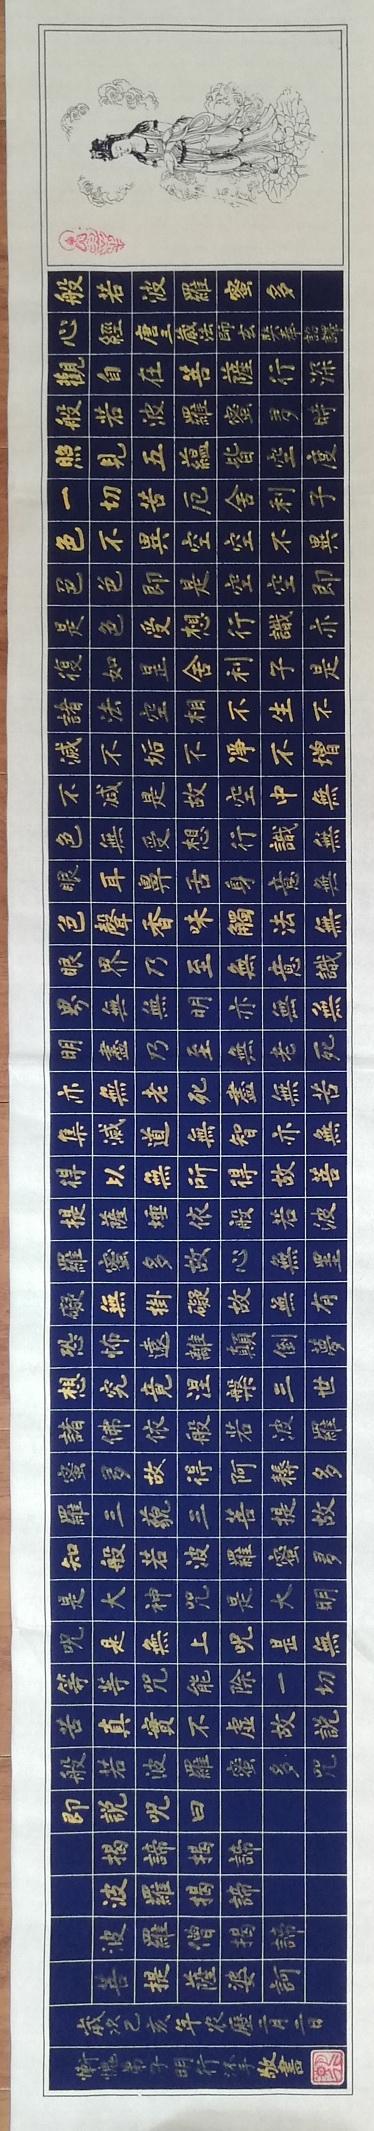 般若波羅蜜多
心經唐三藏法師玄奘奉詔譯
觀自在菩薩行深
般若波羅蜜多時
照見五蘊皆空度
一切苦厄舍利子
色不異空空不異
色色即是空空即
是色受想行識亦
復如是舍利子是
諸法空相不生不
滅不垢不淨不增
不減是故空中無
色無受想行識無
眼耳鼻舌身意無
色聲香味觸法無
眼界乃至無意識
界無無明亦無無
明盡乃至無老死
亦無老死盡無苦
集滅道無智亦無
得以無所得故菩
提薩埵依般若波
羅蜜多故心無罣
礙無掛礙故無有
恐怖遠離顛倒夢
想究竟涅槃三世
諸佛依般若波羅
蜜多故得阿耨多
羅三藐三菩提故
知般若波羅蜜多
是大神咒是大明
咒是無上咒是無
等等咒能除一切
苦真實不虛故說
般若波羅蜜多咒
即說咒曰
揭諦揭諦
波羅揭諦
波羅僧揭諦
菩提薩婆訶
歲次己亥年農曆二月二日
慚愧弟子明行沐手敬書